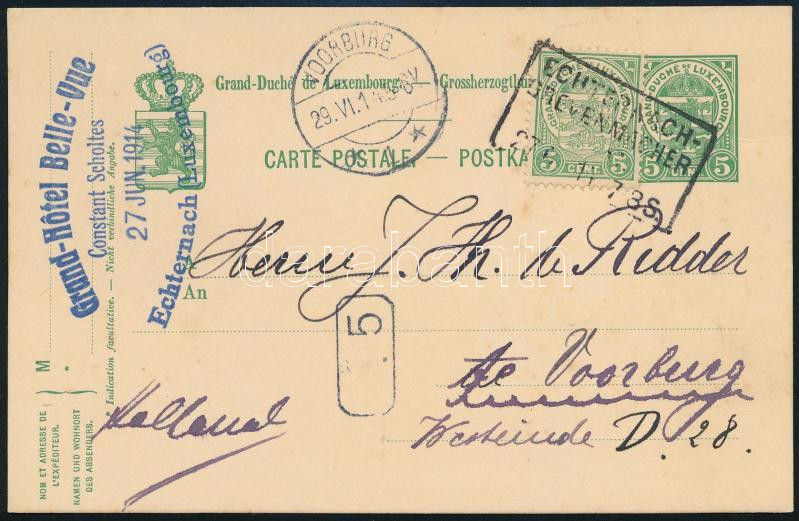 Grand-Hôtel Belle-Vue
Constant Scholtes
27 JUN. 1914
Echternach (Luxembourg)
VOORBURG
29.VI.1
Grand-Duché de Luxembourg. — Grossherzogthu
CARTE POSTALE. — POSTKA
GRAND-DUCHÉ DE LUXEMBOURG
5 5
CENT.
5 5
CENT.
ECHTERNACH-
GREVENMACHER
27 6
Herrn J. Th. de Ridder
An
te Voorburg
Westeinde D. 28.
Holland
5
M
* Indication facultative. — Nicht verbindliche Angabe.
NOM ET ADRESSE DE
L'EXPÉDITEUR.
NAMEN UND WOHNORT
DES ABSENDERS.
darabanth.com